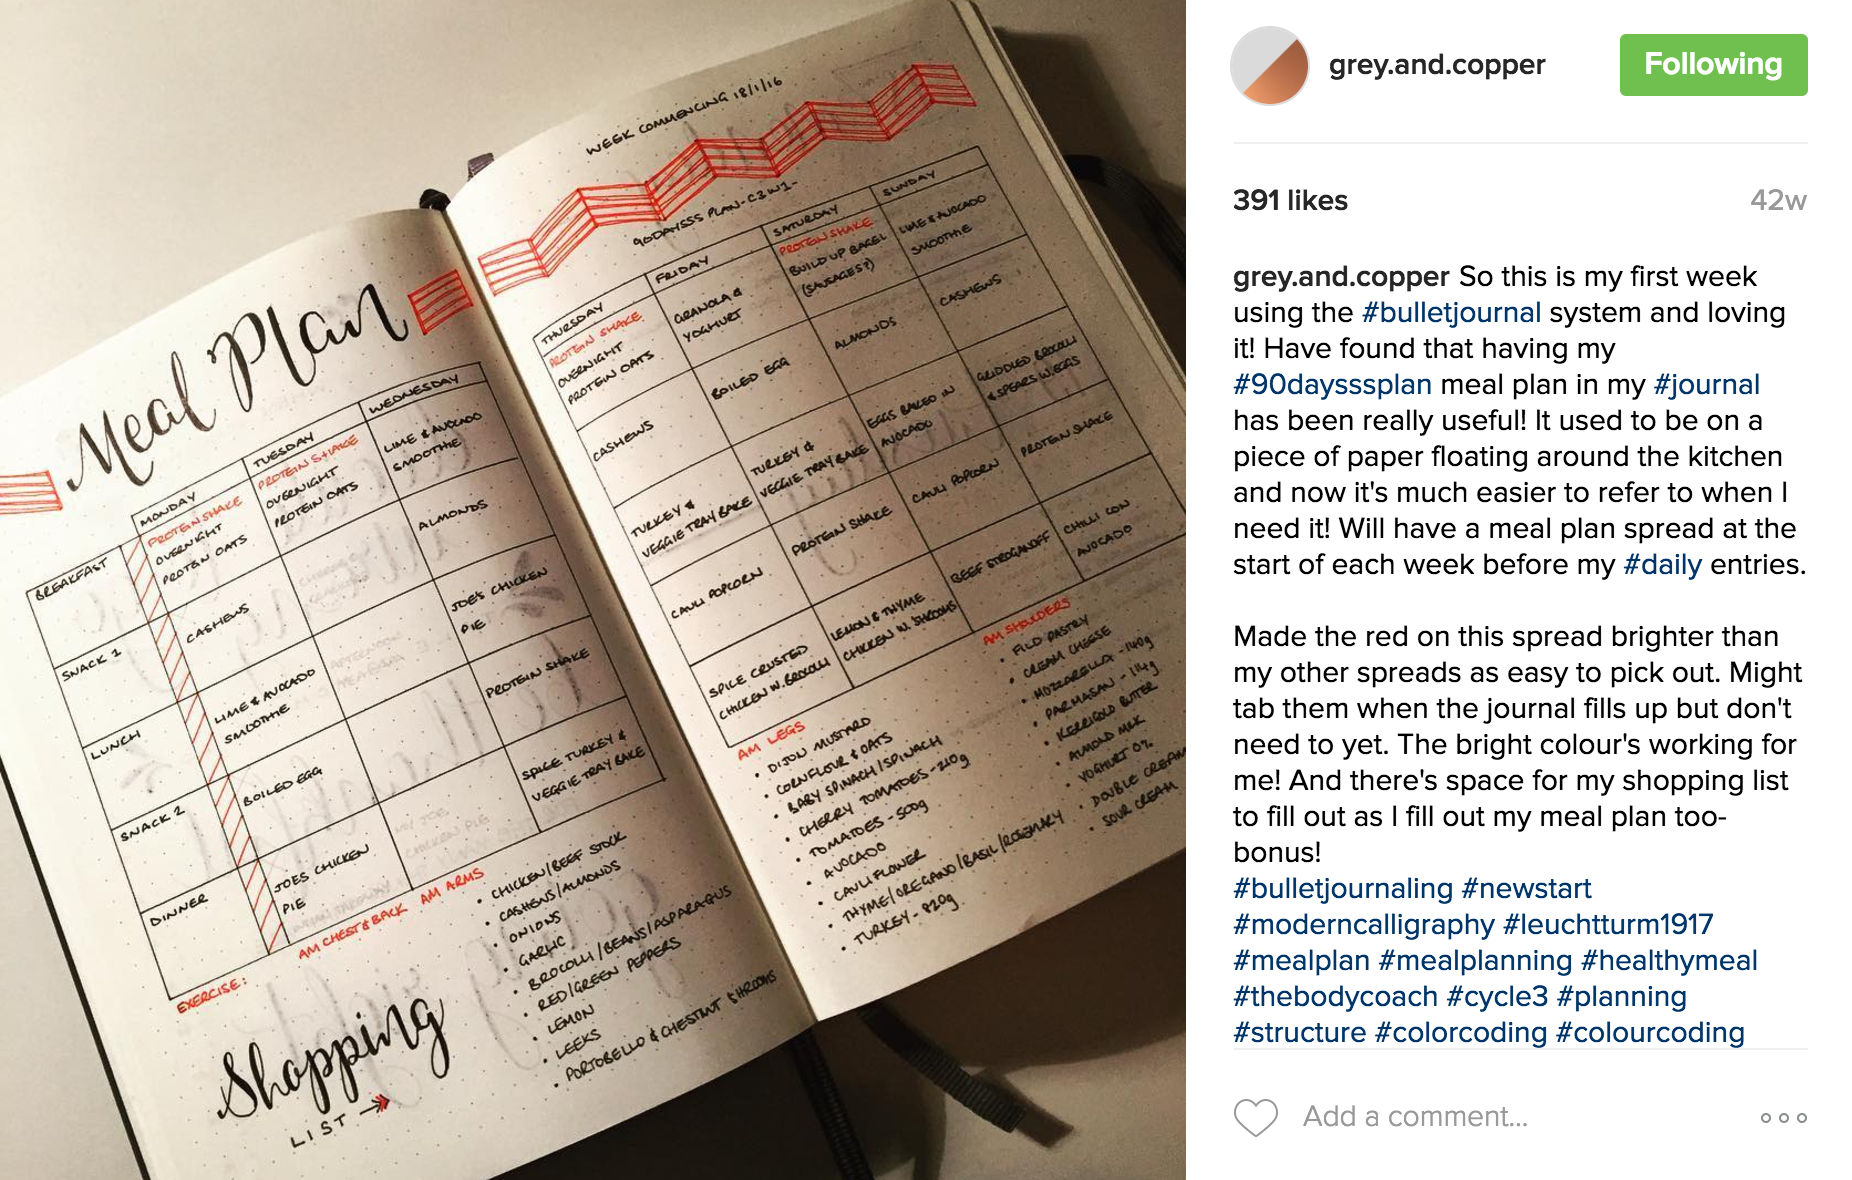 Meal Plan
MONDAY
TUESDAY
WEDNESDAY
BREAKFAST
PROTEIN SHAKE
OVERNIGHT
PROTEIN OATS
PROTEIN SHAKE
OVERNIGHT
PROTEIN OATS
LIME & AVOCADO
SMOOTHIE
SNACK 1
CASHEWS
ALMONDS
LUNCH
LIME & AVOCADO
SMOOTHIE
JOE'S CHICKEN
PIE
SNACK 2
BOILED EGG
PROTEIN SHAKE
DINNER
JOES CHICKEN
PIE
SPICE TURKEY &
VEGGIE TRAY BAKE
EXERCISE:
AM CHEST & BACK
AM ARMS
Shopping
LIST
CHICKEN/BEEF STOCK
CASHEWS/ALMONDS
ONIONS
GARLIC
BROCOLLI/BEANS/ASPARAGUS
RED/GREEN PEPPERS
LEMON
LEEKS
PORTOBELLO & CHESTNUT SHROOMS
WEEK COMMENCING 18/1/16
90DAYSSS PLAN - C3 W1 -
THURSDAY
FRIDAY
SATURDAY
SUNDAY
PROTEIN SHAKE
OVERNIGHT
PROTEIN OATS
GRANOLA &
YOGHURT
PROTEIN SHAKE
BUILD UP BAGEL
(SAUSAGES?)
LIME & AVOCADO
SMOOTHIE
CASHEWS
BOILED EGG
ALMONDS
CASHEWS
TURKEY &
VEGGIE TRAY BAKE
TURKEY &
VEGGIE TRAY BAKE
EGGS BAKED IN
AVOCADO
GRIDDLED BROCOLLI
& SPEARS W. EGGS
CAULI POPCORN
PROTEIN SHAKE
CAULI POPCORN
PROTEIN SHAKE
SPICE CRUSTED
CHICKEN W. BROCOLLI
LEMON & THYME
CHICKEN W. SHROOMS
BEEF STROGANOFF
CHILLI CON
AVOCADO
AM LEGS
AM SHOULDERS
DIJON MUSTARD
CORNFLOUR & OATS
BABY SPINACH/SPINACH
CHERRY TOMATOES - 210g
TOMATOES - 500g
AVOCADO
CAULIFLOWER
THYME/OREGANO/BASIL/ROSEMARY
TURKEY - 820g
FILO PASTRY
CREAM CHEESE
MOZZARELLA - 140g
PARMASAN - 114g
KERRIGOLD BUTTER
ALMOND MILK
YOGHURT 0%
DOUBLE CREAM
SOUR CREAM
grey.and.copper
Following
391 likes
42w
grey.and.copper So this is my first week
using the #bulletjournal system and loving
it! Have found that having my
#90daysssplan meal plan in my #journal
has been really useful! It used to be on a
piece of paper floating around the kitchen
and now it's much easier to refer to when I
need it! Will have a meal plan spread at the
start of each week before my #daily entries.
Made the red on this spread brighter than
my other spreads as easy to pick out. Might
tab them when the journal fills up but don't
need to yet. The bright colour's working for
me! And there's space for my shopping list
to fill out as I fill out my meal plan too-
bonus!
#bulletjournaling #newstart
#moderncalligraphy #leuchtturm1917
#mealplan #mealplanning #healthymeal
#thebodycoach #cycle3 #planning
#structure #colorcoding #colourcoding
Add a comment...